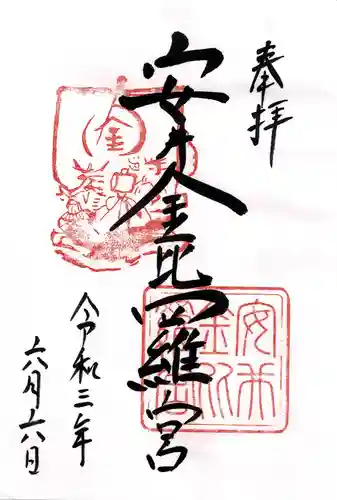 奉拝
安井金比羅宮
金
安井金比羅宮
令和三年
六月六日